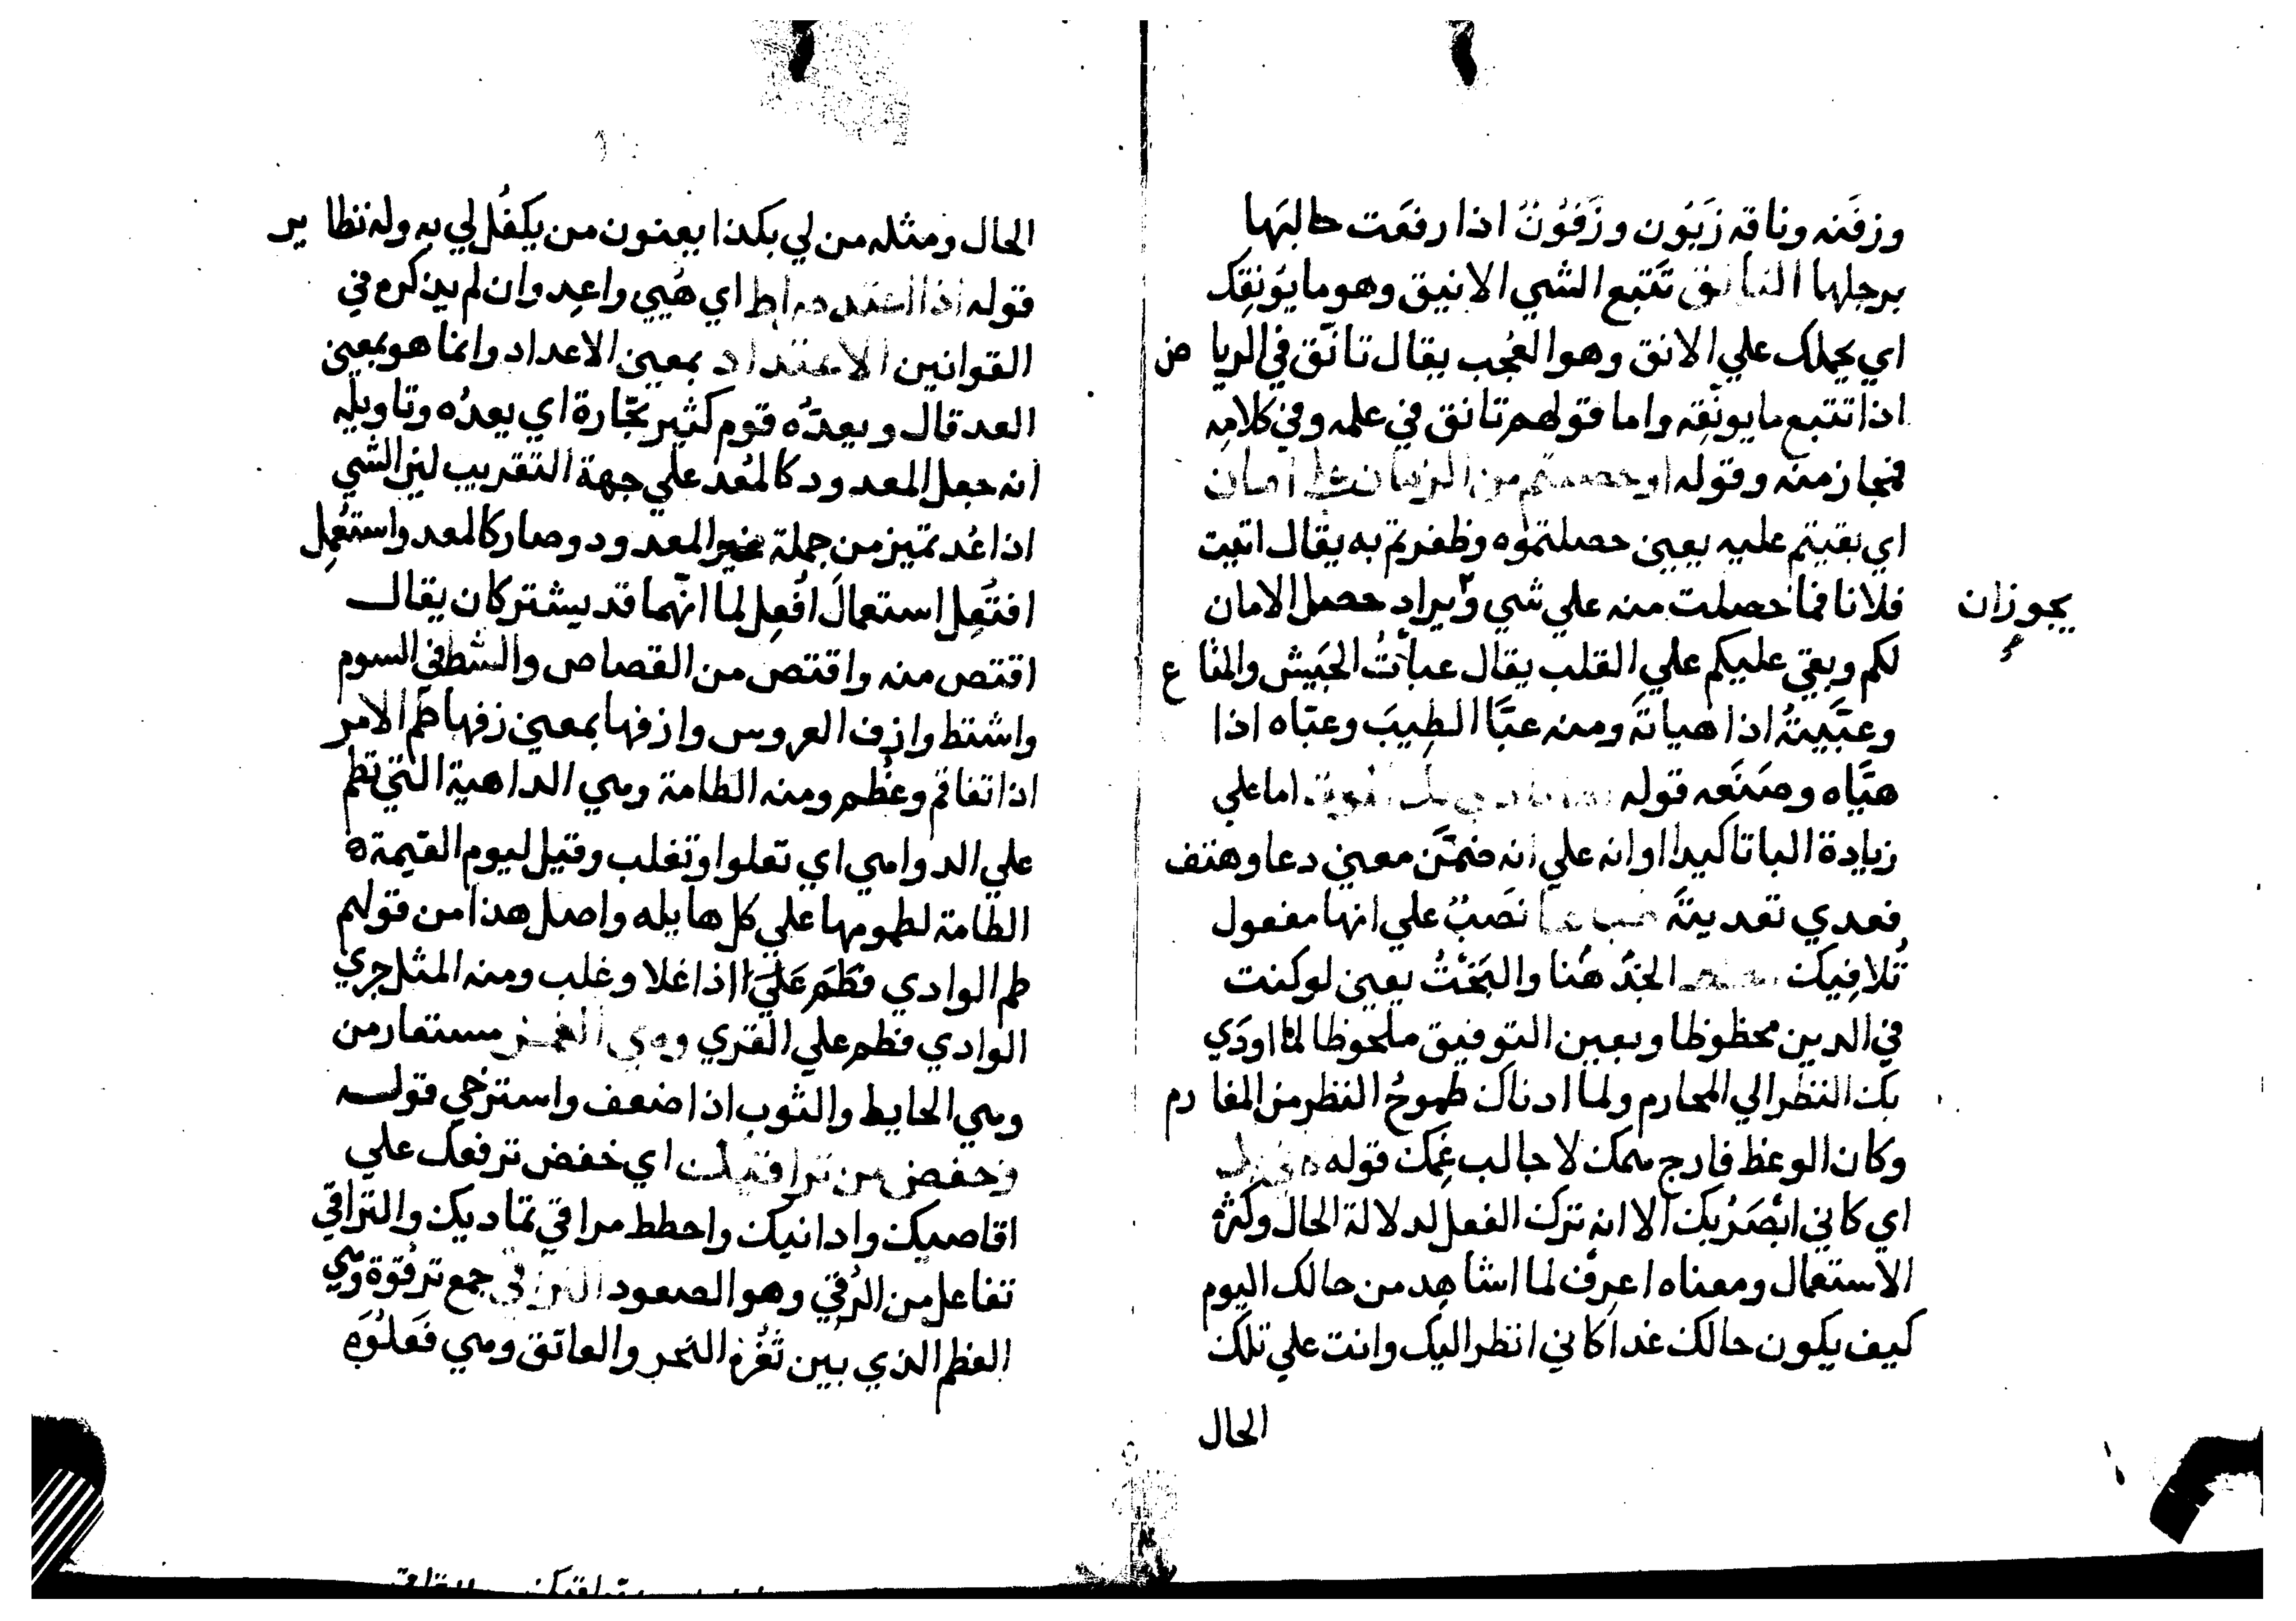 وزفَنه وناقه زَبُون وزَفُونٌ اذا رفعَت حالبَها
برجلها التانق تَتَبع الشي الانيق وهو مايُونِقك
اي يحملك علي الانق وهو العُجب يقال تانّق في الرياض
اذا تتبع مايونّقه واما قولهم تانق في علمه وفي كلامه
فمجاز منه وقوله او حصلتم من الزمان علي امان
اي بقيتم عليه يعين حصلتموه وظفرتم به يقال اتيت
فلانا فما حصلت منه علي شي ويراد حصل الامان
يجوز ان
لكم وبقي عليكم علي القلب يقال عبأتُ الجَيش والمتاع
وعبَّيتهُ اذا هياته ومنه عبَّا الطِيبَ وعبّاه اذا
هيَّاه وصَنَعه قوله اما علي
زيادة البا تاكيدا اوانه علي انه ضمَّن معين دعا وهتف
فعدي تعديتَه نَصبٌ علي انها مفعول
تُلافِيك الجَدّ هُنا والبَخْتُ يعين لوكنت
في الدين محظوظا وبعين التوفيق ملحوظا لما اودَي
بك النظر الي المحارم ولما ادناك طموحُ النظر من المغارم
وكان الوعظ فارج همك لا جالب غِمك قوله
اي كاني ابْصَرُ بك الا انه ترك الفعل لدلالة الحال وكثرة
الاستعمال ومعناه اعرِفُ لما اشاهِد من حالك اليوم
كيف يكون حالك غدا كاني انظر اليك وانت علي تلك
الحال
الحال ومثله من لي بكذا يعنون من يكفُل لي به وله نظاير
قوله اي هَيي واعِد وان لم يذكره في
القوانين الاعتداد بمعين الاعداد وانما هو بمعين
العد قال ويعدّه قوم كثير تجّارة اي يعدُه وتاويله
انه جعل المعدود كالمُعَد علي جهة التقريب لين الشي
اذا عُد تميز من جملة غير المعدود وصار كالمعد واستُعمِل
افتُعِل استعمالَ اُفعِل لما انّهما قد يشتركان يقال
اقتص منه واقتص من القصاص والشط في السوم
واشتط وازف العروس وازفها بمعين زفها طم الامر
اذا تفاقم وعظُم ومنه الطامة وهي الداهية التي تطم
علي الدواهي اي تعلوا وتغلب وقيل ليوم القيمة ه
الطامة لطمومها علي كل هايله واصل هذا من قولهم
طم الوادي فطَمَ عَلَيَّ اذا غلا وغلب ومنه المثل جري
الوادي فطم علي القري وهي مستعار من
وهي الحايط والثوب اذا ضعف واسترخي قوله
وخفض من تراقيك اي خفض ترفعك علي
اقاصيك وادانيك واحطط مراقي تماديك والتراقي
تفاعل من الرُقي وهو الصعود التراقي جمع ترقُوة وهي
العظم الذي بين ثغْرة النحر والعاتق وهي فَعلُوَه